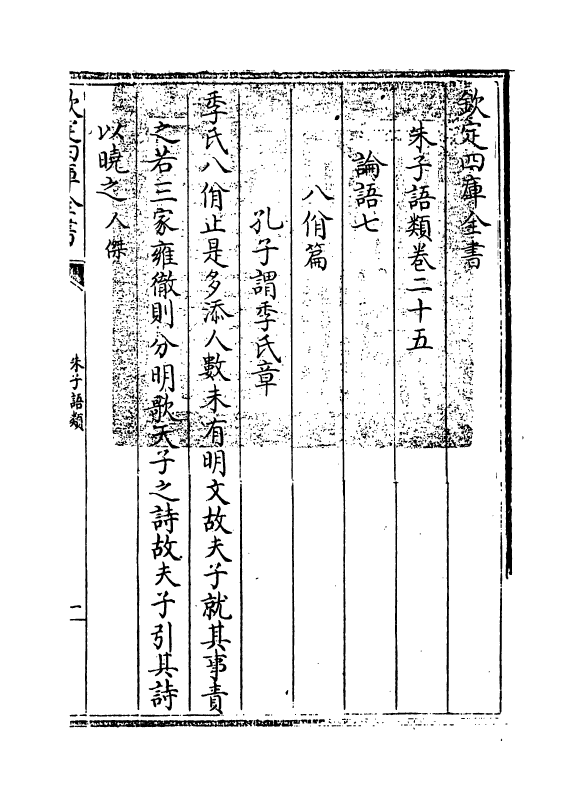 欽定四庫全書
朱子語類卷二十五
論語七
八佾篇
孔子謂季氏章
季氏八佾止是多添人數未有明文故夫子就其事責
之若三家雍徹則分明歌天子之詩故夫子引其詩
以曉之人傑
欽定四庫全書
朱子語類
一